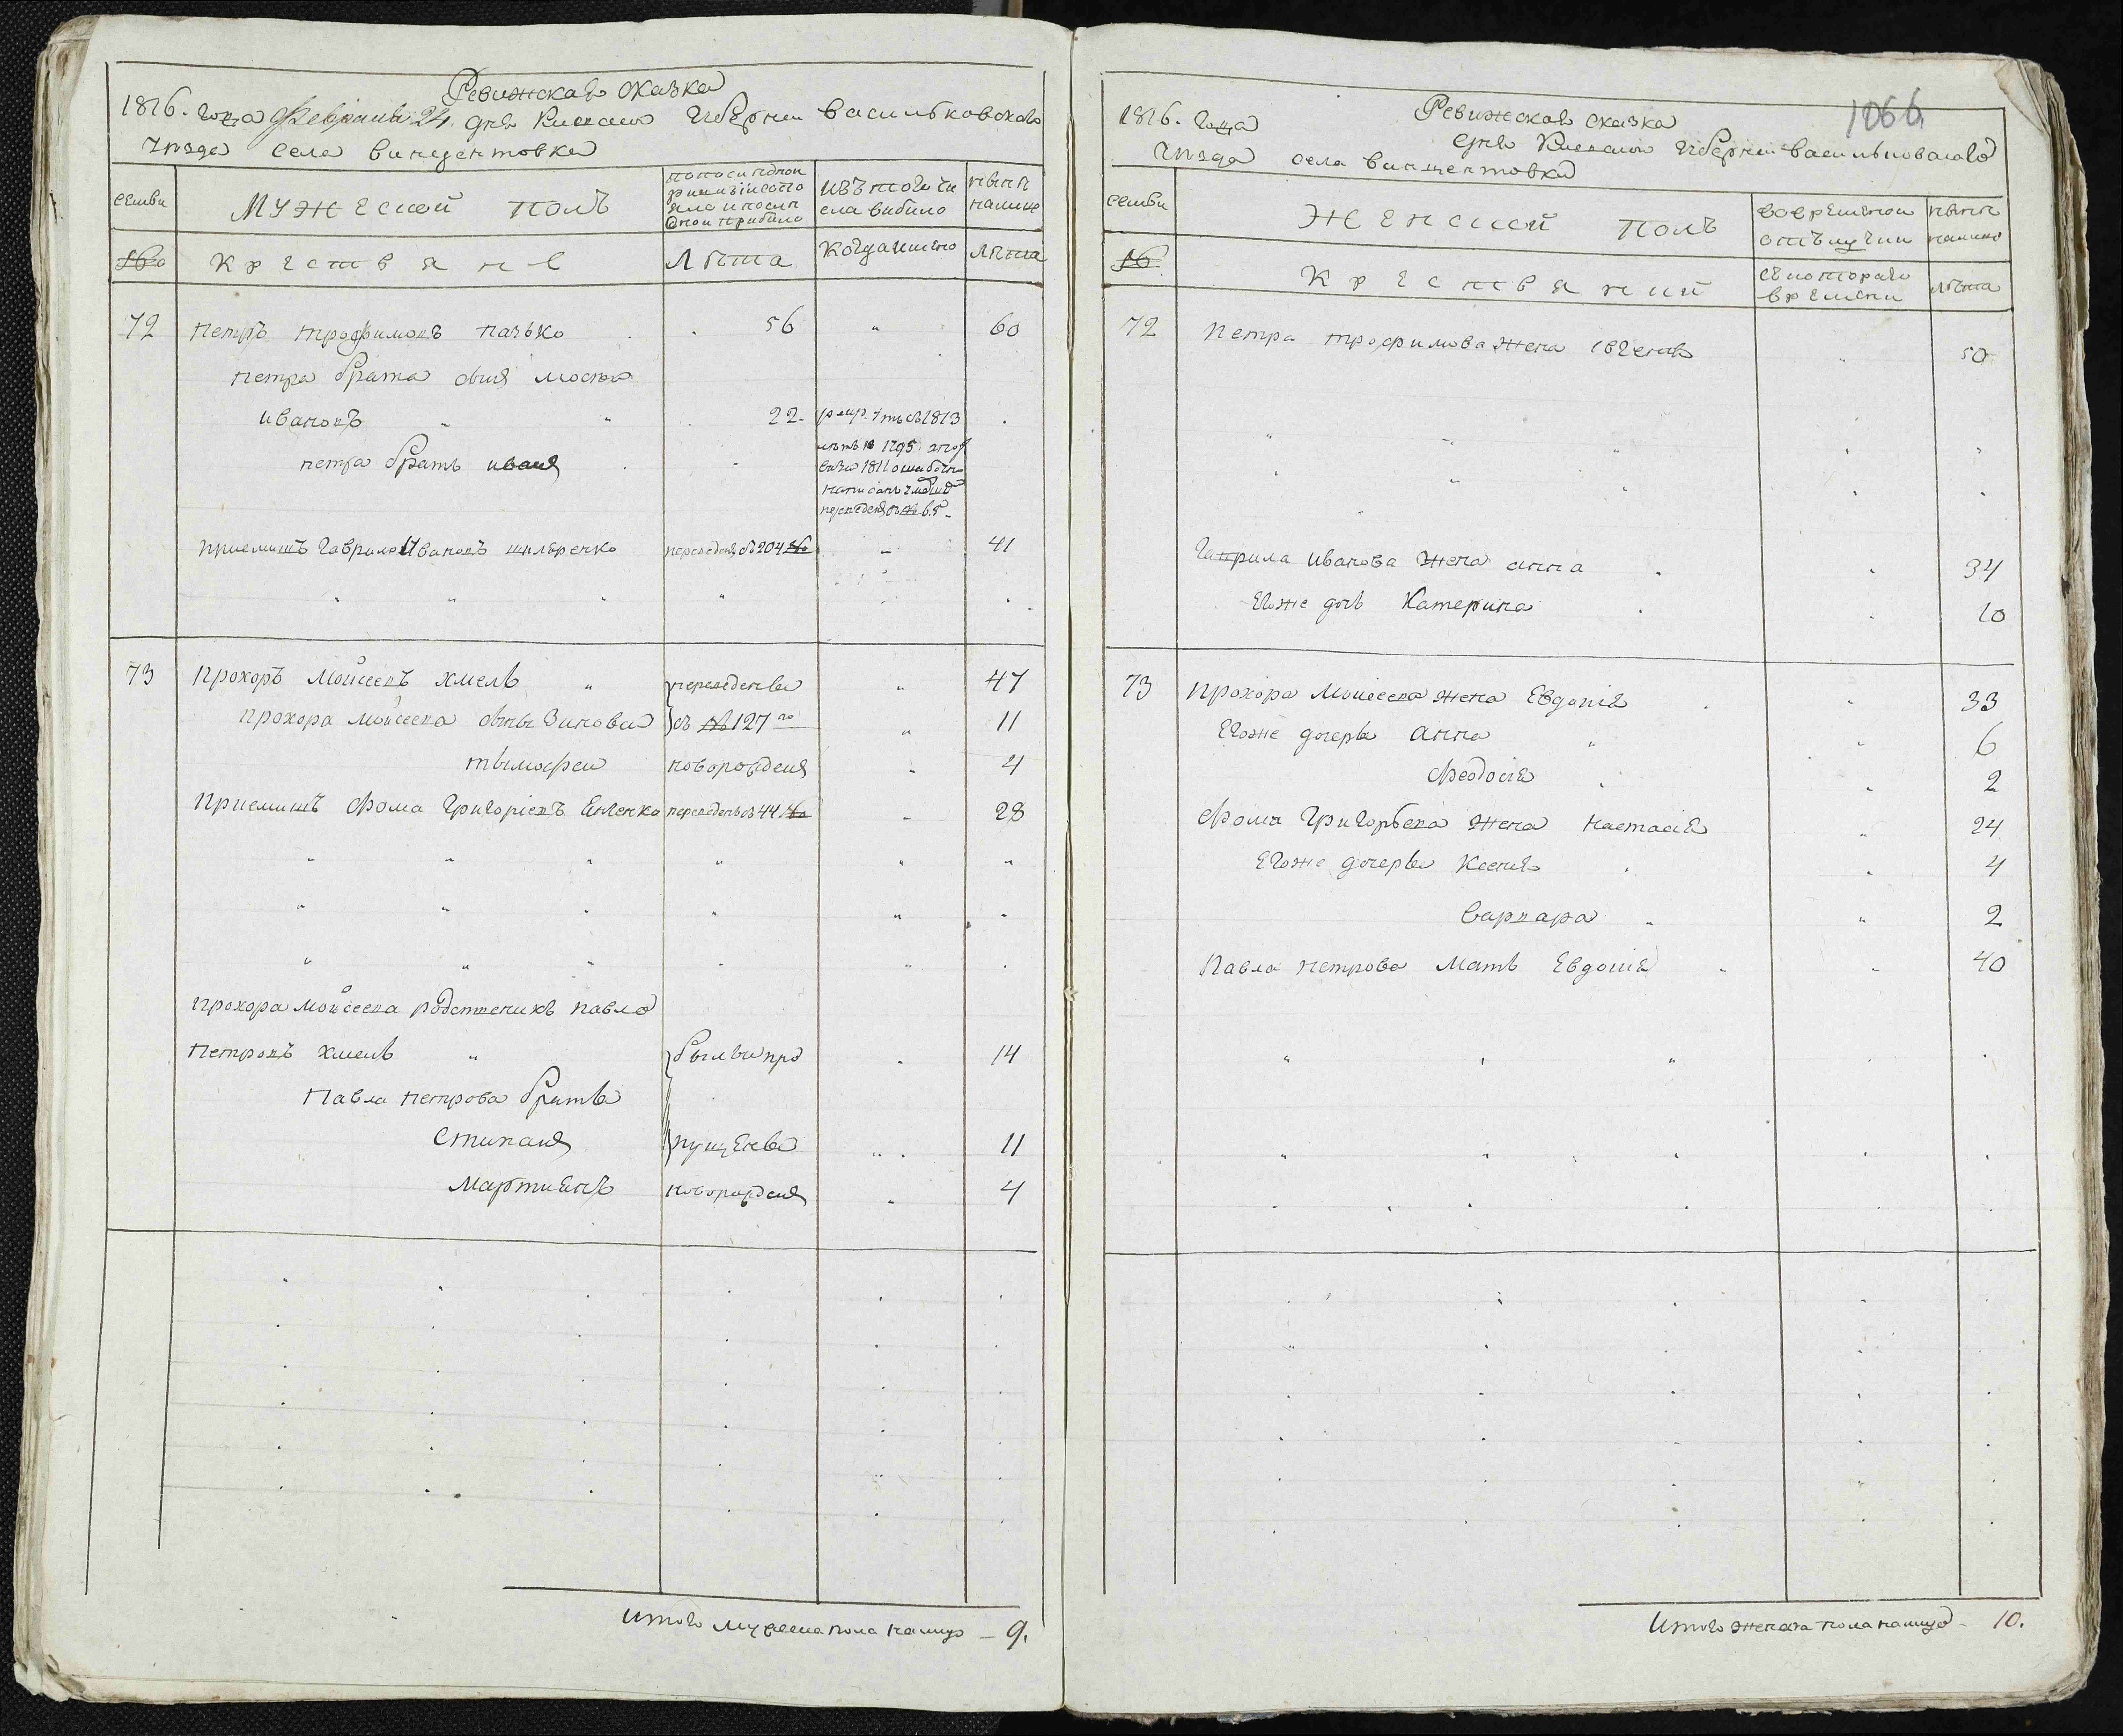 Ревижская сказка
1816. года Февраля 24. дня Киевской Губернии Васильковского
Уезда села Винцентовки
семьи
Мужеской полъ
по последней ревизии состояло и после оной прибыло
изъ того числа выбыло
ныне налицо
№
Крестьяне
Лета
Когда имено
Лета
72 Петръ Трофимовъ Пазько 56 60
Петра брата сынъ
Ивановъ 22 1813
Петра братъ Иванъ
1795
1811 ошибочно
написанъ
приемышъ Гаврило Ивановъ переведенъ съ 204 № 41
73 Прохоръ Мойсеевъ Хмель переведены 47
Прохора Мойсеева сыны Зиновей съ № 127го 11
Тымофей новорожденъ 4
Приемышъ Фома Григориевъ переведенъ съ 44 № 28
Прохора Мойсеева родственикъ Павло
Петровъ Хмель были про 14
Павла Петрова братья
Степанъ пущены 11
Мартинъ новорожденъ 4
Итого мужеска пола налицо – 9.
1066
Ревижская сказка
1816. года дня Киевской Губернии Васильковского
Уезда села Винцентовки
семьи
Женской полъ
во временной отлучки
ныне налицо
№
Крестьяний
съ которого времени
лета
72 Петра Трофимова жена 50
Гаврила Иванова жена Анна 34
Егоже дочь Катерина 10
73 Прохора Мойсеева жена Евдокия 33
Егоже дочеры Анна 6
Феодосия 2
Фомы Григорьева жена Настасия 24
Егоже дочеры Ксения 4
Варвара 2
Павла Петрова мать Евдокия 40
Итого женска пола налицо – 10.